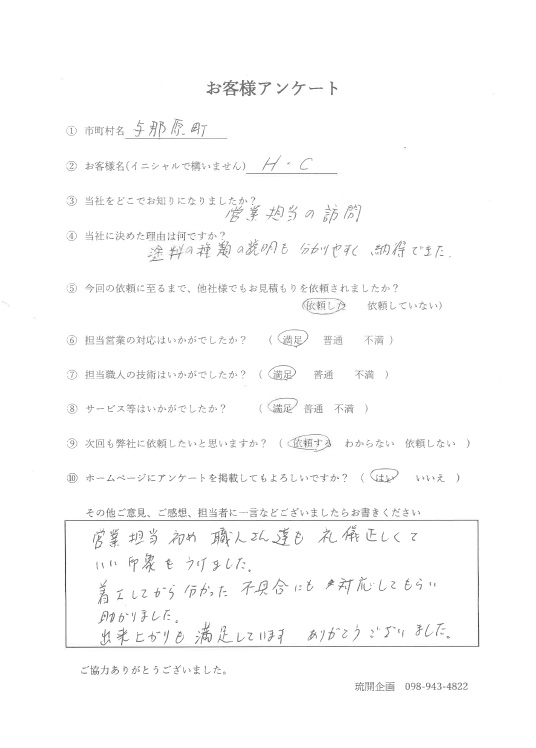 お客様アンケート
① 市町村名 与那原町
② お客様名(イニシャルで構いません) H・C
③ 当社をどこでお知りになりましたか?
営業担当の訪問
④ 当社に決めた理由は何ですか?
塗料の種類の説明も 分かりやすく 納得できた.
⑤ 今回の依頼に至るまで、他社様でもお見積もりを依頼されましたか?
依頼した 依頼していない)
⑥ 担当営業の対応はいかがでしたか? ( 満足 普通 不満 )
⑦ 担当職人の技術はいかがでしたか? ( 満足 普通 不満 )
⑧ サービス等はいかがでしたか? ( 満足 普通 不満 )
⑨ 次回も弊社に依頼したいと思いますか? ( 依頼する わからない 依頼しない )
⑩ ホームページにアンケートを掲載してもよろしいですか? ( はい いいえ )
その他ご意見、ご感想、担当者に一言などございましたらお書きください
営業担当 初め 職人さん達も 礼儀正しくて
いい印象も うけました。
着工してから 分かった 不具合にも 対応してもらい
助かりました。
出来上がりも 満足しています ありがとうございました。
ご協力ありがとうございました。
琉開企画 098-943-4822